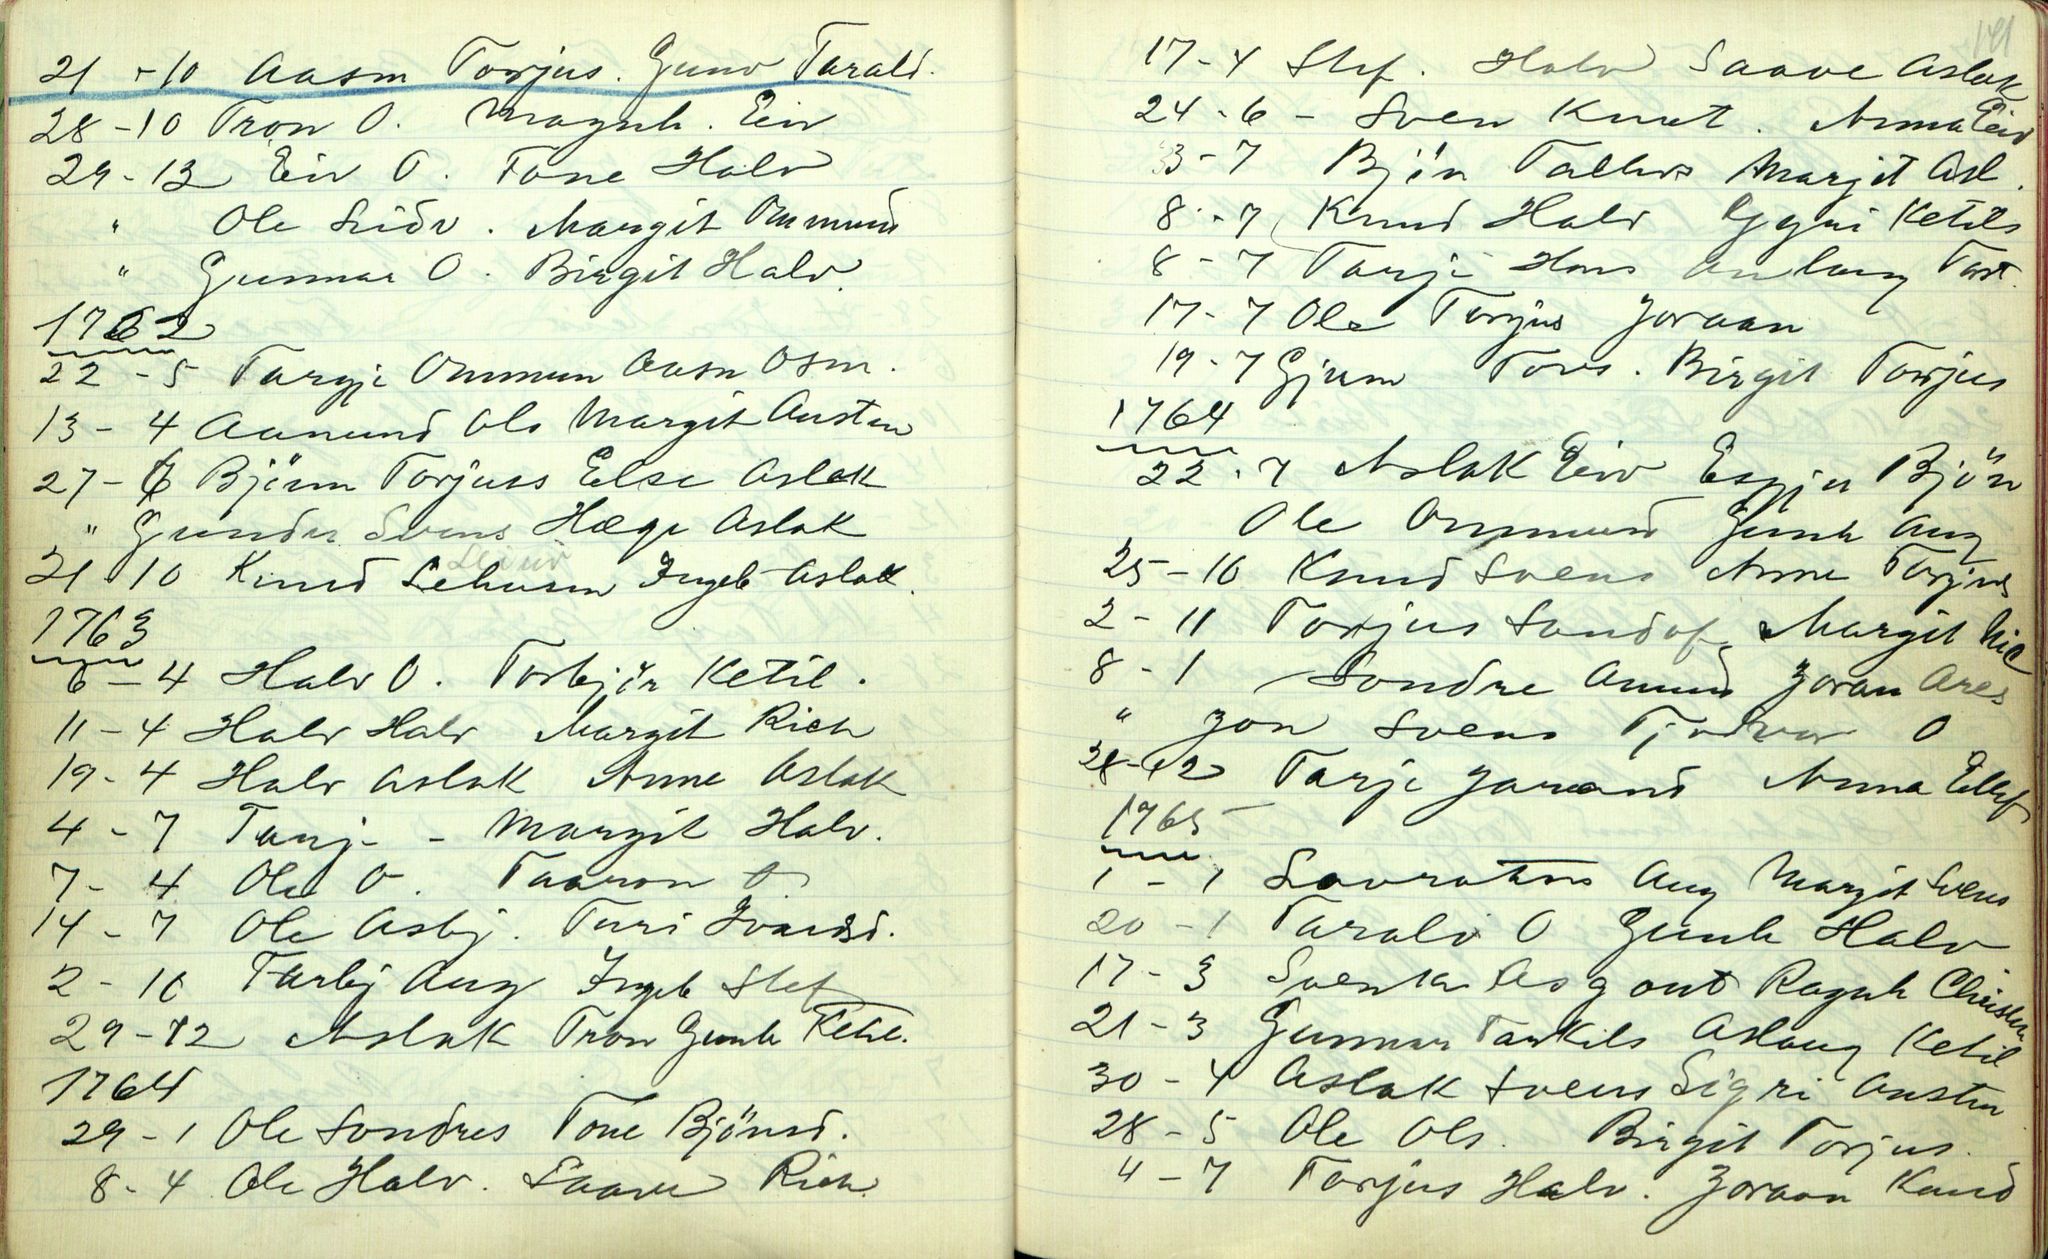 21 - 10 Aasm Torjus. Gunv Tarald.
28 - 10 Tron O. Magnh. Eiv
29 - 12 Eiv O. Tone Halv
" Ole Sidv. Margit Ommund
" Gunnar O. Birgit Halv.
1762
22 - 5 Targje Ommun Aasn Osm.
13 - 4 Aanund Ols Margit Austen
27 - 6 Björn Torjuss Else Aslak
" Gunder Svens Hæge Aslak
21 10 Knud Ingeb Aslak.
1763
6 - 4 Halv O. Torbjör Ketil.
11 - 4 Halv Halv Margit Rich
19 - 4 Halv Aslak Anne Aslak
4 - 7 Tarj - - Margit Halv.
7 - 4 Ole O. Taaron O
14 - 7 Ole Asbj. Turi
2 - 10 Tarbj Aug Ingeb Stef
29 - 12 Aslak Tron Gunh Ketil.
1764
29 - 1 Ole Sondres Tone Björnsd.
8 - 4 Ole Halv. Saave Rich.
141
17 - 4 Stef. Halv Saave Aslak
24 - 6 - Sven Knut. Anna Eiv
3 - 7 Bjön Tallevs Margit Asl.
8 - 7 Knud Halv Gyri Ketils
8 - 7 Tarje Hans Anlaug Tost.
17 - 7 Ole Torjus Joraan
19 - 7 Gjerm Tovs. Birgit Torjus
1764
22 - 7 Aslak Eiv Espjer Bjön
Ole Ommund Gunh Aug
25 - 10 Knud Svens Anne Torjus
2 - 11 Torjus Sandof. Margit Nic
8 - 1 Sondre Amund Joran Ares
" Jon Svens Tjodvor O
28 - 12 Tarje Jarand Anna Ellef
1765
1 - 1 Aug Margit Svens
20 - 1 Tarald O Gunh Halv
17 - 3 Svenke Asgout Ragnh Christen
21 - 3 Gunnar Tarkils Aslaug Ketil
30 - 4 Aslak Svens Sigri Austen
28 - 5 Ole Ols. Birgit Torjus.
4 - 7 Torjus Halv. Joraan Knud